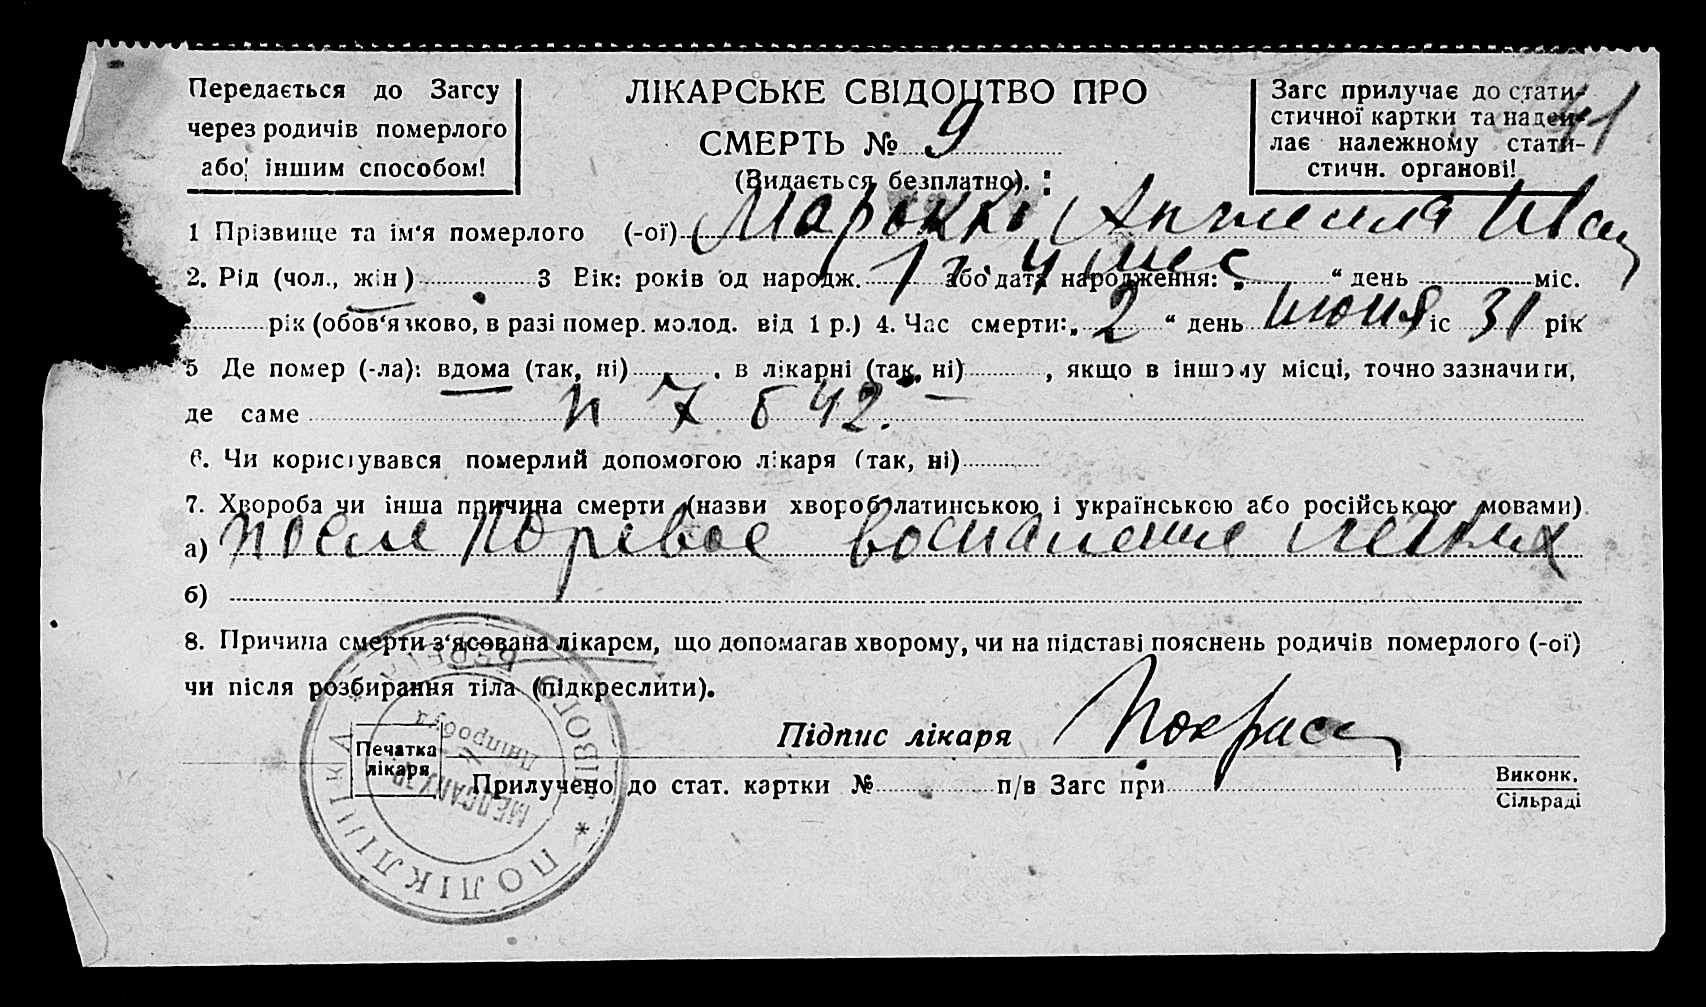 Передається до Загсу
через родичів померлого
або іншим способом!
ЛІКАРСЬКЕ СВІДОЦТВО ПРО
СМЕРТЬ № 9
(Видається безплатно).
Загс прилучає до стати-
стичної картки та надси-
лає належному стати-
стичн. органові!
41
1 Прізвище та ім'я померлого (-ої)
2. Рід (чол., жін) 3 Вік: років од народж. 1 г 4 мес або дата народження: „ “ день міс.
рік (обов'язково, в разі помер. молод. від 1 р.) 4. Час смерти: „ 2 “ день июня міс 31 рік
5 Де помер (-ла): вдома (так, ні) , в лікарні (так, ні) , якщо в іншому місці, точно зазначити,
де саме п 7 б 42. –
6. Чи користувався померлий допомогою лікаря (так, ні)
7. Хвороба чи інша причина смерти (назви хвороб латинською і українською або російською мовами)
а) после коревое воспаление легких
б)
8. Причина смерти з'ясована лікарем, що допомагав хворому, чи на підставі пояснень родичів померлого (-ої)
чи після розбирання тіла (підкреслити).
Підпис лікаря
Печатка
лікаря
Прилучено до стат. картки № п/в Загс при
Виконк.
Сільраді
ПОЛІКЛІНІКА